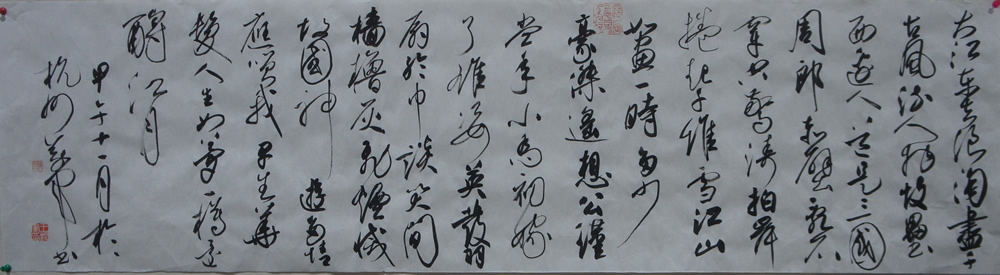 大江東去浪淘盡千
古風流人物故壘
西邊人道是三國
周郎赤壁亂石
穿空驚濤拍岸
捲起千堆雪江山
如畫一時多少
豪傑遥想公瑾
當年小喬初嫁
了雄姿英發羽
扇綸巾談笑間
檣櫓灰飛煙滅
故國神遊多情
應笑我早生華
髮人生如夢一樽還
酹江月
甲午十一月於
杭州書